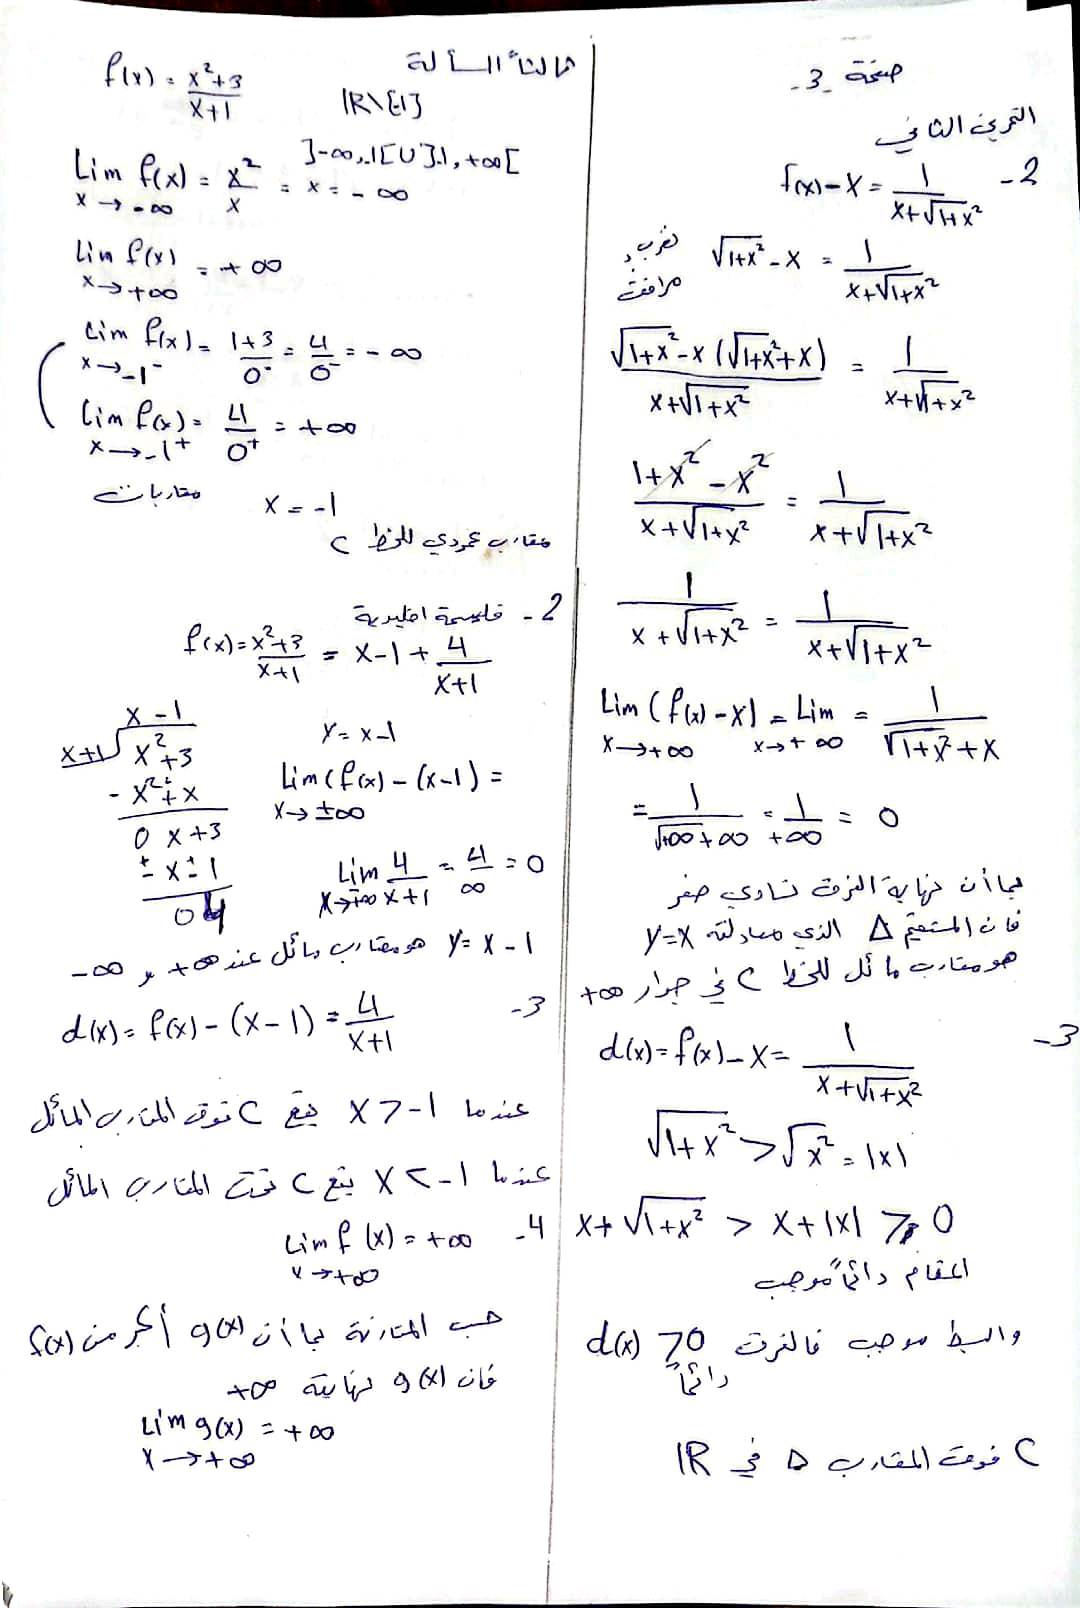 صفحة -3-
التمرين الثاني
2- f(x)-x = 1/(x+√(1+x²))
√(1+x²) - x = 1/(x+√(1+x²)) نضرب بـ مرافق
√(1+x²)-x (√(1+x²)+x) / (x+√(1+x²)) = 1/(x+√(1+x²))
(1+x²-x²)/(x+√(1+x²)) = 1/(x+√(1+x²))
1/(x+√(1+x²)) = 1/(x+√(1+x²))
Lim (f(x)-x) x→+∞ = Lim x→+∞ = 1/(√(1+x²)+x)
= 1/(√+∞+∞) = 1/+∞ = 0
بما أن نهاية الفرق تساوي صفر
فان المستقيم Δ الذي معادلته y=x
هو مقارب مائل للخط C في جوار +∞
3- d(x)=f(x)-x= 1/(x+√(1+x²))
√(1+x²) > √x² = |x|
x+√(1+x²) > x+|x| ⩾ 0
المقام دائماً موجب
والبسط موجب فالفرق d(x) >0
دائماً
C فوق المقارب Δ في IR
ثالثاً المسألة
f(x) = (x²+3)/(x+1) IR\{-1}
]-∞,-1[ U ]-1,+∞[
Lim f(x) x→-∞ = x²/x = x = -∞
Lim f(x) x→+∞ = +∞
Lim f(x) x→-1⁻ = (1+3)/0⁻ = 4/0⁻ = -∞
Lim f(x) x→-1⁺ = 4/0⁺ = +∞
مقاربات x = -1
مقارب عمودي للخط C
2- قسمة اقليدية
f(x)=(x²+3)/(x+1) = x-1+ 4/(x+1)
x-1
x+1 √ x²+3
- x²+x
0 x+3
± x ± 1
04
y= x-1
Lim (f(x)-(x-1) = x→±∞
Lim 4/(x+1) x→±∞ = 4/∞ = 0
y= x-1 هو مقارب مائل عند +∞ و -∞
3- d(x)= f(x)-(x-1)= 4/(x+1)
عندما x>-1 يقع C فوق المقارب المائل
عندما x<-1 يقع C تحت المقارب المائل
4- Lim f(x) = +∞ x→+∞
حسب المقارنة بما أن g(x) أكبر من f(x)
فان g(x) نهايته +∞
Lim g(x) = +∞ x→+∞